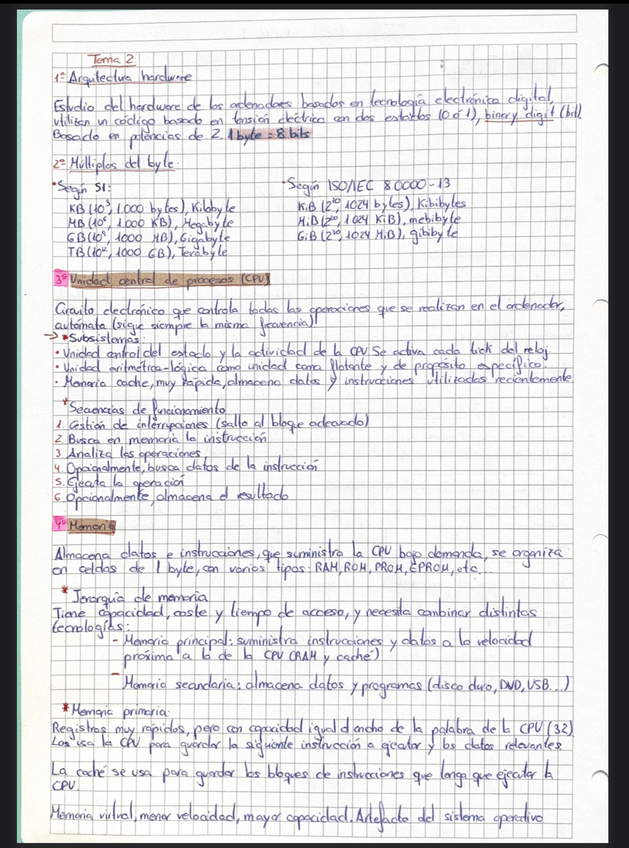 Tema 2
1º Arquitectura hardware
Estudio del hardware de los ordenadores basados en tecnología electrónica digital,
utilizan un código basado en tensión eléctrica con dos estados (0 ó 1), binary digit (bit)
Basado en potencias de 2. 1 byte = 8 bits
2º Múltiplos del byte
• Según SI:
KB (10³, 1.000 bytes), Kilobyte
MB (10⁶, 1.000 KB), Megabyte
GB (10⁹, 1000 MB), Gigabyte
TB (10¹², 1000 GB), Terabyte
• Según ISO/IEC 80000-13
KiB (2¹⁰, 1024 bytes), Kibibytes
MiB (2²⁰, 1024 KiB), mebibyte
GiB (2³⁰, 1024 MiB), gibibyte
3º Unidad central de procesos (CPU)
Circuito electrónico que controla todas las operaciones que se realizan en el ordenador,
autómata (sigue siempre la misma secuencia)
→ * Subsistemas:
• Unidad control del estado y la actividad de la CPU Se activa cada tick del reloj.
• Unidad aritmética-lógica como unidad coma flotante y de propósito específico.
• Memoria cache, muy rápida, almacena datos y instrucciones utilizados recientemente
* Secuencias de funcionamiento
1. Gestión de interrupciones (salto al bloque adecuado)
2 Busca en memoria la instrucción
3 Analiza las operaciones
4. Opcionalmente, busca datos de la instrucción
5 Ejecuta la operación
6. Opcionalmente, almacena el resultado
4º Memoria
Almacena datos e instrucciones, que suministra la CPU bajo demanda, se organiza
en celdas de 1 byte, con varios tipos: RAM, ROM, PROM, EPROM, etc...
* Jerarquía de memoria
Tiene capacidad, coste y tiempo de acceso, y necesita combinar distintas
tecnologías:
- Memoria principal: suministra instrucciones y datos a la velocidad
próxima a la de la CPU (RAM y caché)
- Memoria secundaria: almacena datos y programas (disco duro, DVD, USB...)
* Memoria primaria
Registros muy rápidos, pero con capacidad igual al ancho de la palabra de la CPU (32)
Los usa la CPU para guardar la siguiente instrucción a ejecutar y los datos relevantes
La caché se usa para guardar los bloques de instrucciones que tenga que ejecutar la
CPU.
Memoria virtual, menor velocidad, mayor capacidad. Artefacto del sistema operativo